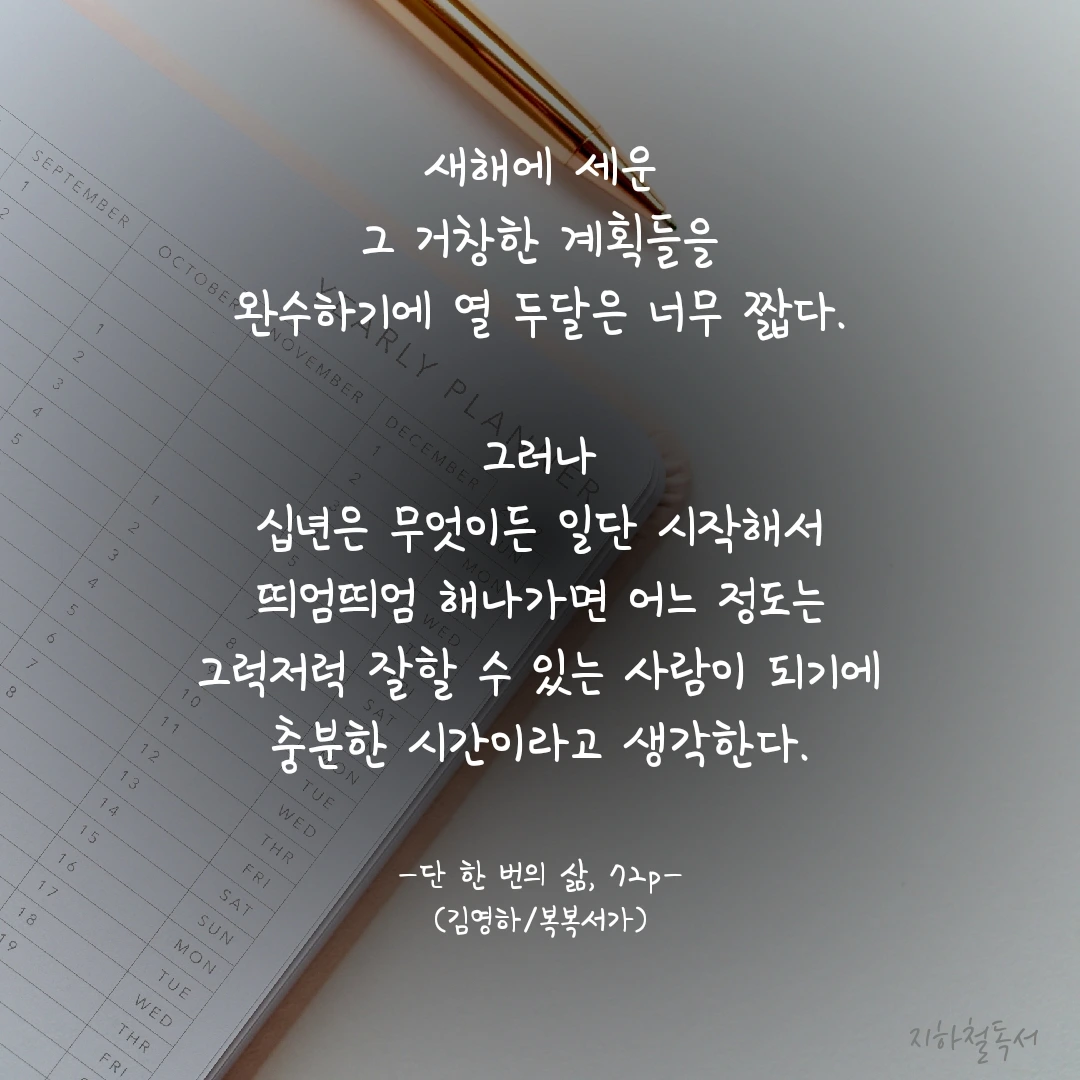 새해에 세운
그 거창한 계획들을
완수하기에 열 두달은 너무 짧다.
그러나
십년은 무엇이든 일단 시작해서
띄엄띄엄 해나가면 어느 정도는
그럭저럭 잘할 수 있는 사람이 되기에
충분한 시간이라고 생각한다.
-단 한 번의 삶, 72p-
(김영하/복복서가)
지하철독서
YEARLY PLANNER
SEPTEMBER
OCTOBER
NOVEMBER
DECEMBER
1
2
1
2
3
4
5
1
2
3
4
5
6
7
8
1
2
10
11
12
13
14
15
16
17
18
19
MON
WED
SAT
SUN
MON
TUE
WED
THR
FRI
SAT
SUN
MON
TUE
WED
THR
FRI